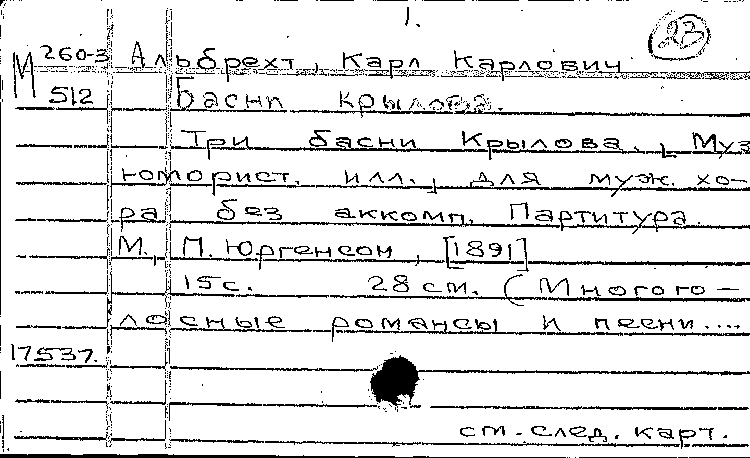 1.
23
М 260-3 Альбрехт, Карл Карлович
512 Басни Крылова.
Три басни Крылова. [Муз
юморист. илл.], для муж. хо-
ра без аккомп. Партитура.
М., П. Юргенсон, [1891]
15 с. 28 см. (Многого-
лосные романсы и песни....
17537.
см. след. карт.